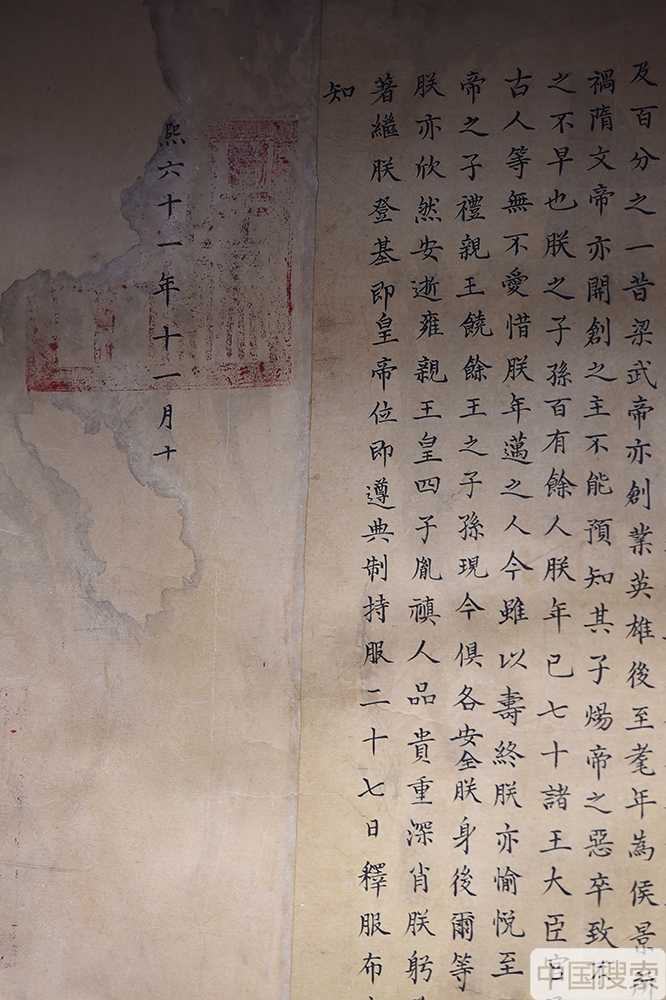 及百分之一昔梁武帝亦創業英雄後至耄年為侯景所
禍隋文帝亦開創之主不能預知其子煬帝之惡卒致不
之不早也朕之子孫百有餘人朕年已七十諸王大臣官
古人等無不愛惜朕年邁之人今雖以壽終朕亦愉悅至
帝之子禮親王饒餘王之子孫現今俱各安全朕身後爾等
朕亦欣然安逝雍親王皇四子胤禛人品貴重深肖朕躬
著繼朕登基即皇帝位即遵典制持服二十七日釋服布
知
熙六十一年十一月十
中国搜索